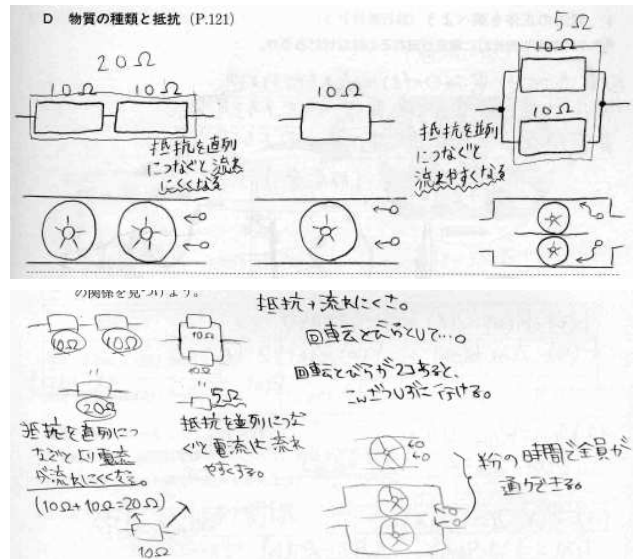 D 物質の種類と抵抗 (P.121)
20Ω
10Ω 10Ω
抵抗を直列
につなぐと流れ
にくくなる
10Ω
5Ω
10Ω
10Ω
抵抗を並列
につなぐと
流れやすくなる
の関係を見つけよう。
10Ω 10Ω
"
20Ω
抵抗を直列につ
なぐとより電流
が流れにくくなる。
(10Ω+10Ω=20Ω)
10Ω
10Ω
10Ω
"
5Ω
抵抗を並列につな
ぐと電流は流れ
やすくなる。
抵抗→流れにくさ。
回転とびらとして…。
回転とびらが2コあると、
こんざつせずに行ける。
半分の時間で全員が
通りできる。